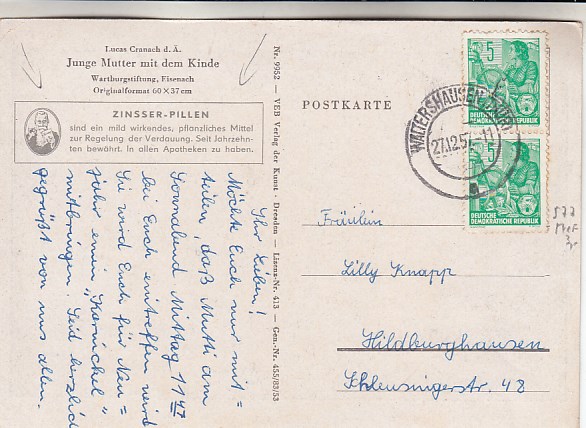 Lucas Cranach d. Ä.
Junge Mutter mit dem Kinde
Wartburgstiftung, Eisenach
Originalformat 60 × 37 cm
ZINSSER-PILLEN
sind ein mild wirkendes, pflanzliches Mittel
zur Regelung der Verdauung. Seit Jahrzehn-
ten bewährt. In allen Apotheken zu haben.
Ihr Lieben!
Möchte Euch nur mit=
teilen, daß Mutti am
Sonnabend Mittag 11 47
bei Euch eintreffen wird
Sie wird Euch für Neu=
jahr einen „Karnickel"
mitbringen. Seid herzlich
gegrüßt von uns allen.
Nr. 9952 — VEB Verlag der Kunst - Dresden — Lizenz-Nr. 413 — Gen.-Nr. 455/83/53
POSTKARTE
WALTERSHAUSEN
27.12.57.-11
a
5
DEUTSCHE
DEMOKRATISCHE REPUBLIK
5
DEUTSCHE
DEMOKRATISCHE REPUBLIK
577
Fräulein
Lilly Knapp
Hildburghausen
Schleusingerstr. 48